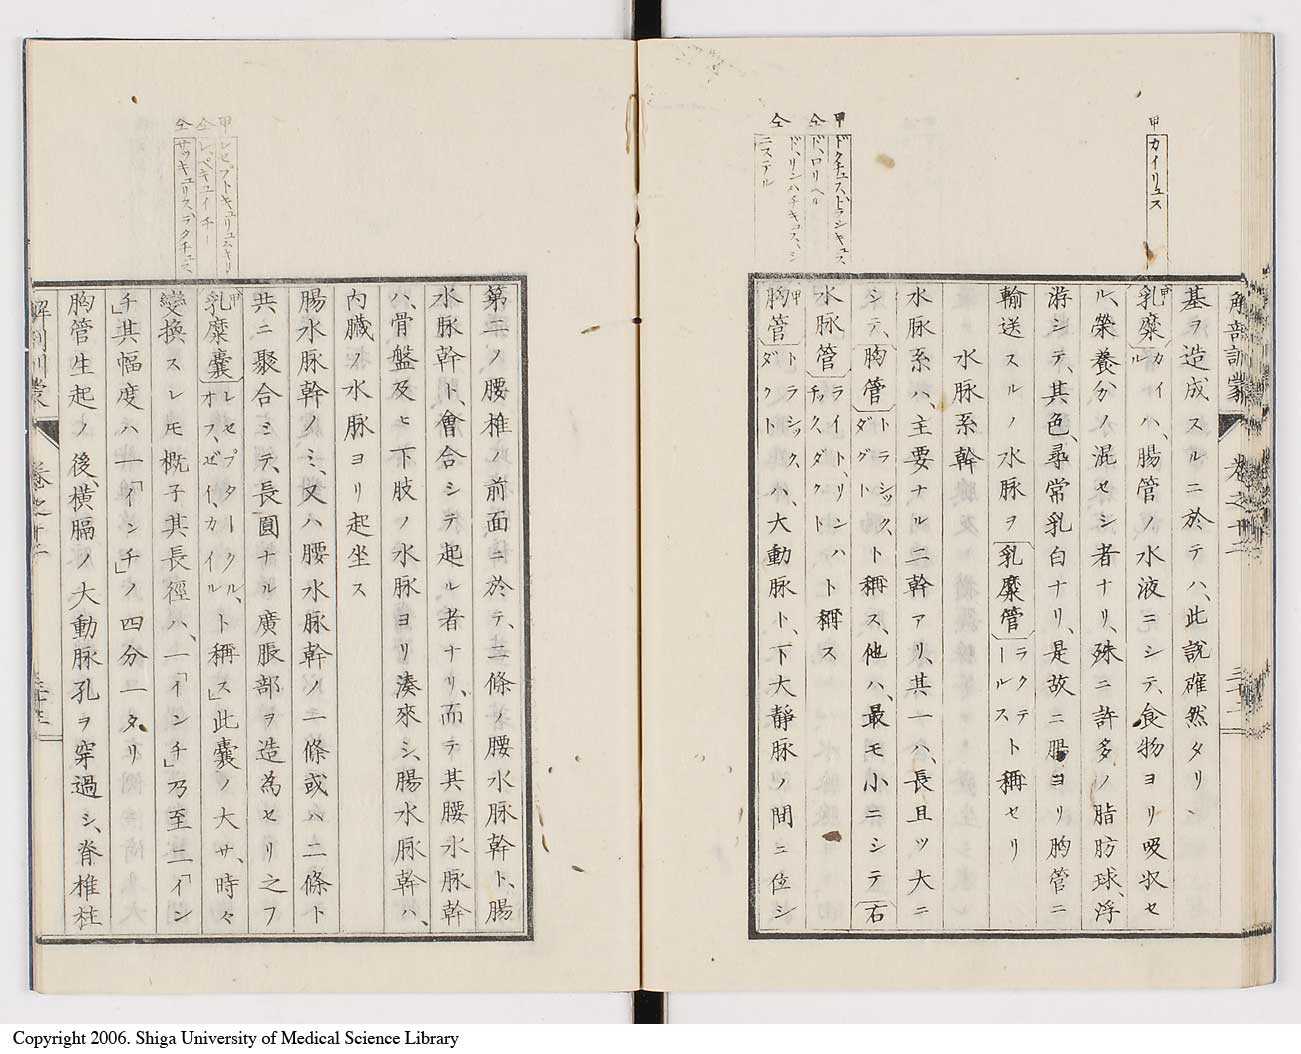 甲 カイリュス
甲 ドクチュス、ドラシキュス
仝 ド、ロリヘル
仝 ド、リンハチキュス、シニステル
解剖訓蒙 卷之十二
基ヲ造成スルニ於テハ、此説確然タリン
乳糜カイルハ、腸管ノ水液ニシテ、食物ヨリ吸収セ
ル、榮養分ノ混セシ者ナリ、殊ニ許多ノ脂肪球、浮
游シテ、其色、尋常乳白ナリ、是故ニ腸ヨリ胸管ニ
輸送スルノ水脉ヲ乳糜管ラクテールスト稱セリ
水脉系幹
水脉系ハ、主要ナル二幹アリ、其一ハ、長且ツ大ニ
シテ、胸管トラシック、ダグトト稱ス、他ハ、最モ小ニシテ右
水脉管ライト、リンハチック、ダクトト稱ス
胸管トラシック、ダクトハ、大動脉ト、下大靜脉ノ間ニ位シ
甲 レセプトキュリュムキリ
仝 レ、ペキュイチー
仝 サッキュリス、ラクチュス
第二ノ腰椎ノ前面ニ於テ、二條ノ腰水脉幹ト、腸
水脉幹ト、會合シテ起ル者ナリ、而テ其腰水脉幹
ハ、骨盤及ヒ下肢ノ水脉ヨリ湊來シ、腸水脉幹ハ、
内臓ノ水脉ヨリ起坐ス
腸水脉幹ノミ、又ハ腰水脉幹ノ一條或ハ二條ト
共ニ聚合ミテ、長圓ナル廣脹部ヲ造為セリ之ヲ
乳糜嚢レセプタークル、オス、ゼイ、カイルト稱ス」此嚢ノ大サ、時々
變換スレモ概子其長徑ハ、一「インチ」乃至二「イン
チ」其幅度ハ一「インチ」ノ四分一タリ
胸管生起ノ後、横膈ノ大動脉孔ヲ穿過シ、脊椎柱
解剖訓蒙 卷之十二
Copyright 2006. Shiga University of Medical Science Library